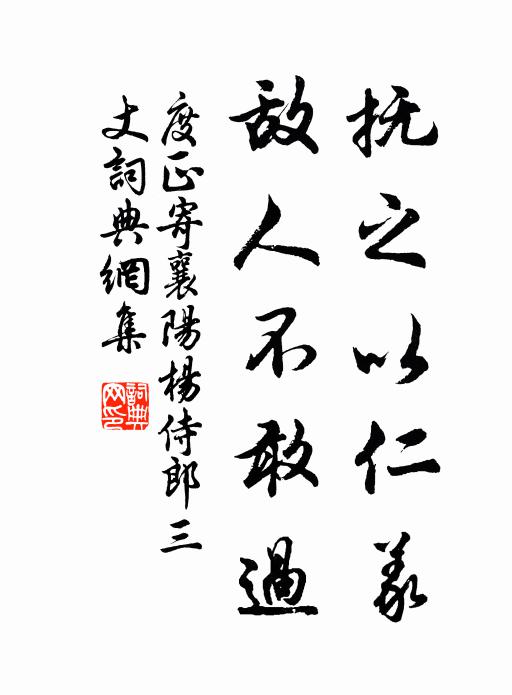 抚之以仁義
敌人不敢過
度正寄襄陽楊侍郎三
丈詞典網集
詞典
网印